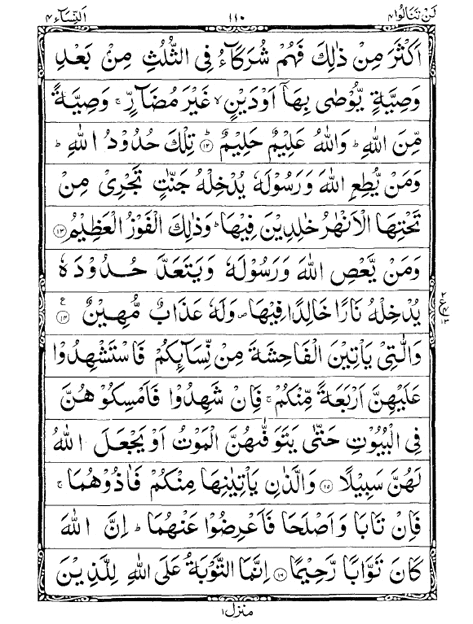 لن تنالوا ٤ ١١٠ النساء ٤
اَكْثَرَ مِنْ ذٰلِكَ فَهُمْ شُرَكَآءُ فِى الثُّلُثِ مِنْ بَعْدِ
وَصِيَّةٍ يُّوْصٰى بِهَآ اَوْدَيْنٍ ۙ غَيْرَ مُضَآرٍّ ۚ وَصِيَّةً
مِّنَ اللّٰهِ ؕ وَاللّٰهُ عَلِيْمٌ حَلِيْمٌ ؕ ۝١٢ تِلْكَ حُدُوْدُ اللّٰهِ ؕ
وَمَنْ يُّطِعِ اللّٰهَ وَرَسُوْلَهٗ يُدْخِلْهُ جَنّٰتٍ تَجْرِىْ مِنْ
تَحْتِهَا الْاَنْهٰرُ خٰلِدِيْنَ فِيْهَا ؕ وَذٰلِكَ الْفَوْزُ الْعَظِيْمُ ۝١٣
وَمَنْ يَّعْصِ اللّٰهَ وَرَسُوْلَهٗ وَيَتَعَدَّ حُدُوْدَهٗ
يُدْخِلْهُ نَارًا خَالِدًا فِيْهَا ۪ وَلَهٗ عَذَابٌ مُّهِيْنٌ ۝١٤ ع
وَالّٰتِىْ يَاْتِيْنَ الْفَاحِشَةَ مِنْ نِّسَآئِكُمْ فَاسْتَشْهِدُوْا
عَلَيْهِنَّ اَرْبَعَةً مِّنْكُمْ ۚ فَاِنْ شَهِدُوْا فَاَمْسِكُوْهُنَّ
فِى الْبُيُوْتِ حَتّٰى يَتَوَفّٰهُنَّ الْمَوْتُ اَوْ يَجْعَلَ اللّٰهُ
لَهُنَّ سَبِيْلًا ۝١٥ وَالَّذٰنِ يَاْتِيٰنِهَا مِنْكُمْ فَاٰذُوْهُمَا ۚ
فَاِنْ تَابَا وَاَصْلَحَا فَاَعْرِضُوْا عَنْهُمَا ؕ اِنَّ اللّٰهَ
كَانَ تَوَّابًا رَّحِيْمًا ۝١٦ اِنَّمَا التَّوْبَةُ عَلَى اللّٰهِ لِلَّذِيْنَ
منزل ١